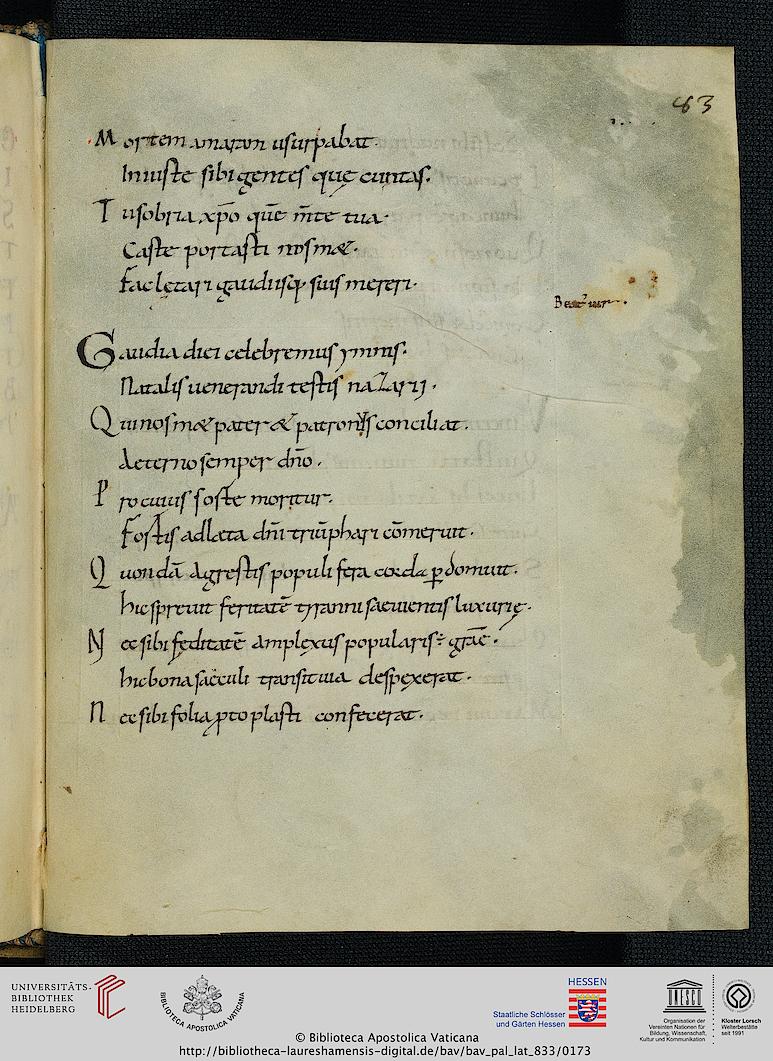 83
Mortem amaram usurpabat·
Iniuste sibi gentes quę cunctas.
Tu sobria xp̄o quę m̄te tua·
Caste portasti nos mæ·
Fac lętari gaudiisq; suis mereri·
Gaudia diei celebremus ymnis·
Natalis uenerandi testis nazarij·
Qui nos mæ pater & patronis conciliat·
Aeterno semper dn̄o.
Pro cuius soste moritur·
Fostis adlata dn̄i triūphari cōmeruit·
Quondā agrestis populi fera corda ꝑdomuit·
hic spreuit feritatē tyranni saeuientis luxurię·
Nec sibi fęditatē amplexus popularis gr̄ae·
hic bona saeculi transitiua despexerat·
Nec sibi folia ꝓtoplasti confecerat·
UNIVERSITÄTS-
BIBLIOTHEK
HEIDELBERG
BIBLIOTECA APOSTOLICA VATICANA
HESSEN
Staatliche Schlösser
und Gärten Hessen
UNESCO
Organisation der
Vereinten Nationen für
Bildung, Wissenschaft,
Kultur und Kommunikation
Kloster Lorsch
Welterbestätte
seit 1991
© Biblioteca Apostolica Vaticana
http://bibliotheca-laureshamensis-digital.de/bav/bav_pal_lat_833/0173